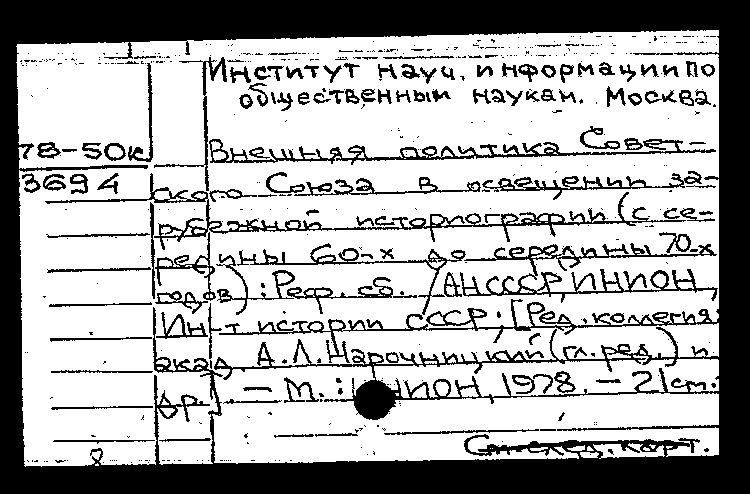 Институт науч. информации по
общественным наукам. Москва.
78-50к
3694
Внешняя политика Совет-
ского Союза в освещении за-
рубежной историографии (с се-
редины 60-х до середины 70-х
годов) : Реф. сб. / АН СССР, ИНИОН,
Ин-т истории СССР; [Ред. коллегия:
акад. А.Л. Нарочницкий (гл. ред.) и
др.]. — М. : ИНИОН, 1978. — 21 см.
См. след. карт.
8